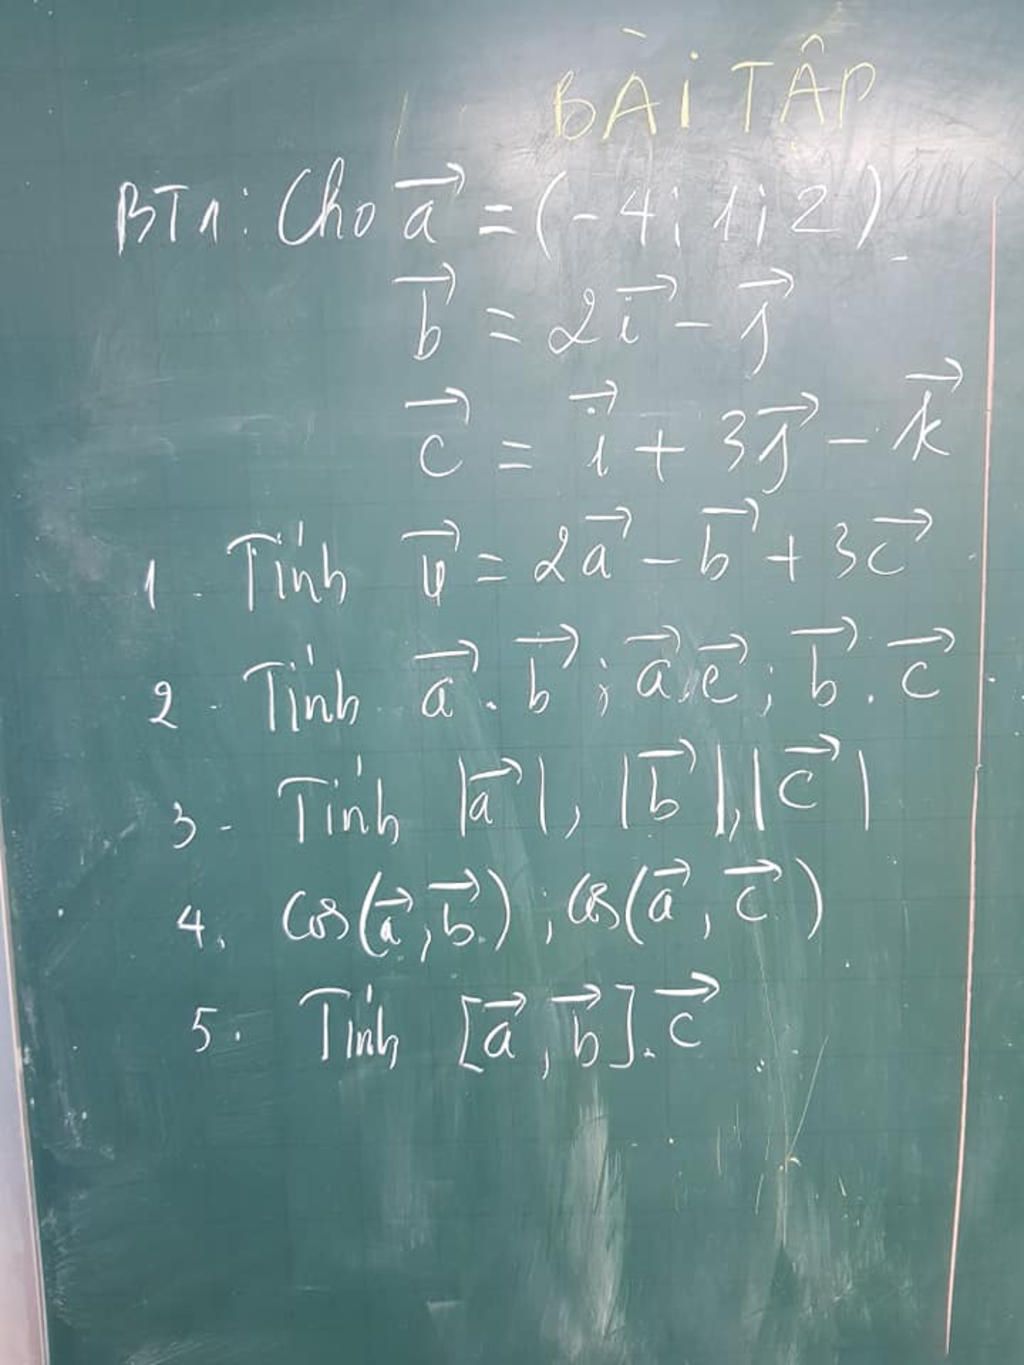 BÀI TẬP
BT1: Cho a⃗ = (-4; 1; 2)
b⃗ = 2i⃗ - j⃗
c⃗ = i⃗ + 3j⃗ - k⃗
1. Tính u⃗ = 2a⃗ - b⃗ + 3c⃗
2. Tính a⃗ . b⃗ ; a⃗.c⃗ ; b⃗ . c⃗
3- Tính |a⃗|, |b⃗|, |c⃗|
4. cos(a⃗, b⃗) ; cos(a⃗, c⃗)
5. Tính [a⃗, b⃗]. c⃗